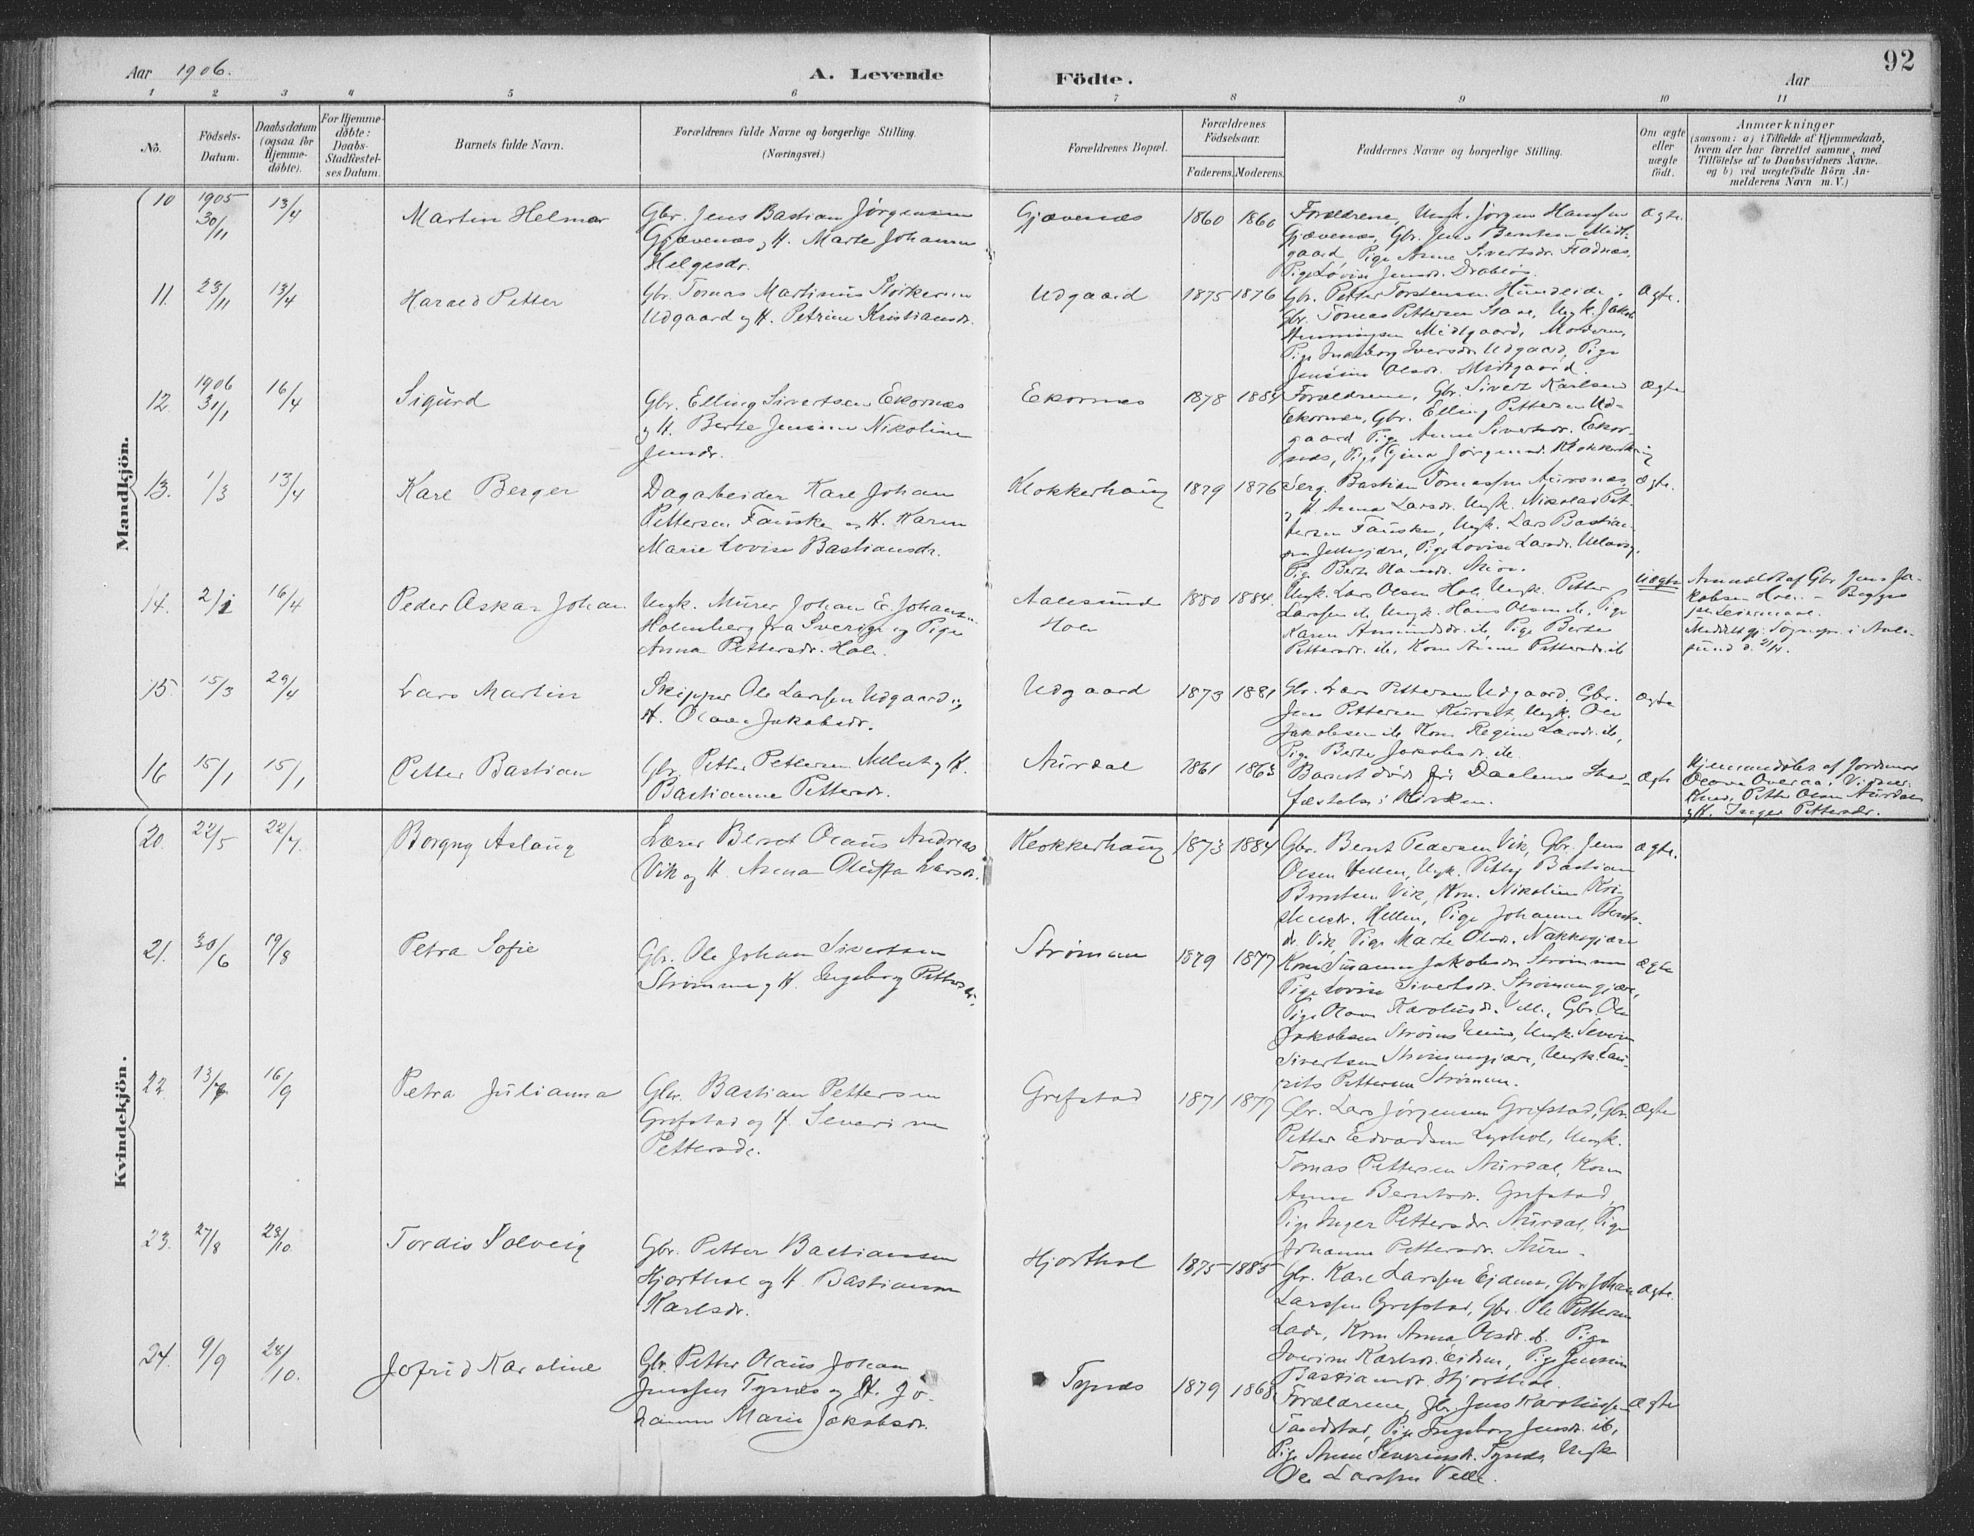 Aar 1906.
A. Levende Födte.
Aar
92
1 2 3 4 5 6 7 8 9 10 11
No.
Födsels-
Datum.
Daabsdatum
(ogsaa for
Hjemme-
döbte).
For Hjemme-
döbte:
Daabs-
Stadfæstel-
ses Datum.
Barnets fulde Navn.
Forældrenes fulde Navne og borgerlige Stilling.
(Næringsvei.)
Forældrenes Bopæl.
Forældrenes
Födselsaar.
Faderens. Moderens.
Faddernes Navne og borgerlige Stilling.
Om ægte
eller
uægte
födt.
Anmærkninger
(saasom: a) i Tilfælde af Hjemmedaab,
hvem der har forrettet samme, med
Tilföielse af to Daabsvidners Navne.
og b) ved uægtefödte Börn An-
melderens Navn m. V.)
Mandkjön.
10 1905 30/11 13/4
Martin Helmer
Gbr. Jens Bastian Jørgensen
Gjævenæs og H. Marte Johanne
Helgesdr.
Gjævenæs 1860 1860
Forældrene, Ungk. Jørgen Hansen
Gjævenæs, Gbr. Jens Berntsen Midt-
gaard, Pige Anne Sivertsdr.
Pige Lovise Jensdr.
Ægte.
11. 23/11 13/4
Harald Petter
Gbr. Tomas Martinus Storkersen
Udgaard og H. Petrine Kristiansdr.
Udgaard 1875 1876
Gbr. Petter Torstensen Hundeide.
Gbr. Tomas Pettersen Ungk. Jakob
Henningsen Midtgaard, Moderen,
Pige Ingeborg Iversdr. Udgaard, Pige
Jensine Olsdr. Midtgaard.
Ægte.
12. 1906 31/1 16/4
Sigurd
Gbr. Elling Sivertsen Ekornæs
og H. Berte Jensine Nikoline
Jensdr.
Ekornæs 1878 1884
Forældrene, Gbr. Sivert Karlsen
Ekornæs, Gbr. Elling Pettersen Ud-
gaard, Pige Anne Sivertsdr. Ekor-
næs, Pige Gina Jørgensd. Klokkerhaug
Ægte
13. 1/3 13/4
Karl Berger
Dagarbeider Karl Johan
Pettersen Fauske og H. Karen
Marie Lovise Bastiansdr.
Klokkerhaug 1879 1876
Serg. Bastian Tomassen
og H. Anna Larsdr. Ungk. Nikolai Pet-
tersen Fauske, Ungk. Lars Bastian-
sen Pige Lovise Larsdr.
Pige Berte
Ægte.
14. 16/4
Peder Oskar Johan
Ungk. Murer Johan E. Johans.
Holmberg fra Sverige og Pige
Anna Pettersdr. Hole.
Aalesund
Hole
1880 1884.
Ungk. Lars Olsen Hole, Ungk. Petter
Larssen ib. Ungk. Hans Olsen ib, Pige
Karen Amundsdr. ib, Pige Berte
Pettersdr. ib, Kone Anne Pettersdr. ib
Uægte
Anmeldt af Gbr. Jens Ja-
kobsen Hole. - Begges
Sognepr. i Aale-
sund d. 21/4.
15 15/3 29/4
Lars Martin
Skipper Ole Larssen Udgaard og
H. Olave Jakobsdr.
Udgaard 1873 1881
Gbr. Lars Pettersen Udgaard, Gbr.
Jens Pettersen Kurset, Ungk. Ole
Jakobsen ib, Kone Regine Larsdr. ib,
Pige Berte Jakobsdr. ib
Ægte
16 15/1 15/1
Petter Bastian
Gbr. Petter Pettersen og H.
Bastianne Pettersdr.
Aurdal 1861 1863
Barnet død før Daabens Stad-
fæstelse i Kirken.
Ægte
Hjemmedøbt af Jordmor
Olava Overaa. Vidner:
Petter Olsen Aurdal
og H. Inger Pettersdr.
Kvindekjön.
20. 22/5 22/7.
Borgny Aslaug
Lærer Bernt Olaus Andreas
Vik og H. Anna Olufa Larsdr.
Klokkerhaug 1873 1884
Gbr. Bernt Pedersen Vik, Gbr. Jens
Olsen Hellen, Ungk. Bastian
Berntsen Vik, Kone Nikoline Kri-
stensdr. Hellen, Pige Johanne Bernts-
dr. Vik, Pige Marte Olsdr. Nakkegjære
ægte.
21. 30/6 19/8
Petra Sofie
Gbr. Ole Johan Sivertsen
Strømme og H. Ingeborg Pettersdr.
Strømmen 1879 1877
Kone Susanne Jakobsdr. Strømmen
Pige Lovise Sivertsdr. Strømmegjære,
Pige Olave Karolusdr. Gbr. Ole
Jakobsen Ungk. Severin
Sivertsen Strømmegjære, Ungk. Lau-
rits Pettersen Strømmen.
ægte
22. 13/7 16/9
Petra Julianna
Gbr. Bastian Pettersen
Grefstad og H. Severine
Pettersdr.
Grefstad 1871 1879
Gbr. Lars Jørgensen Grefstad, Gbr.
Petter Edvardsen Lyshol, Ungk.
Tomas Pettersen Aurdal, Kone
Anna Berntsdr. Grefstad,
Pige Inger Pettersdr. Aurdal, Pige
Johanne Pettersdr. Aure.
Ægte
23. 27/8 28/10.
Tordis Solveig
Gbr. Petter Bastiansen
Hjorthol og H. Bastianne
Karlsdr.
Hjorthol 1875 1885
Gbr. Karl Larssen Eidem, Gbr. Johan
Larssen Grefstad, Gbr. Ole Pettersen
Lade, Kone Anna Olsdr. ib. Pige
Iverine Karlsdr. Eidem, Pige Jensine
Bastiansdr. Hjorthol.
ægte.
24. 9/9 28/10.
Jofrid Karoline
Gbr. Petter Olaus Johan
Jenssen Tynes og H. Jo-
hanne Marie Jakobsdr.
Tynes 1879 1868
Forældrene, Gbr. Jens Karolussen
Tandstad, Pige Ingeborg Jensdr. ib,
Pige Anne Severinsdr. Tynes, Ungk
Ole Larssen Velle.
Ægte